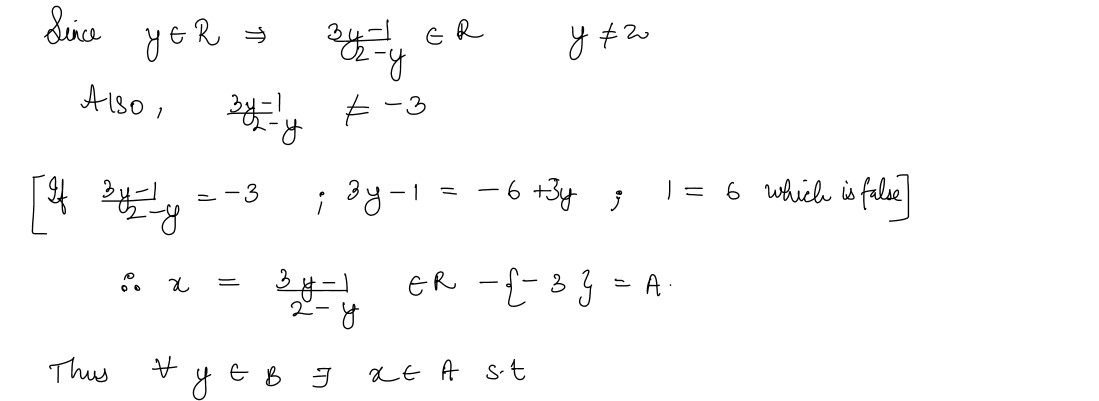 Since y ∈ R ⇒ (3y-1)/(2-y) ∈ R y ≠ 2
Also, (3y-1)/(2-y) ≠ -3
[If (3y-1)/(2-y) = -3 ; 3y-1 = -6+3y ; 1 = 6 which is false]
∴ x = (3y-1)/(2-y) ∈ R -{-3} = A.
Thus ∀ y ∈ B ∃ x ∈ A s.t